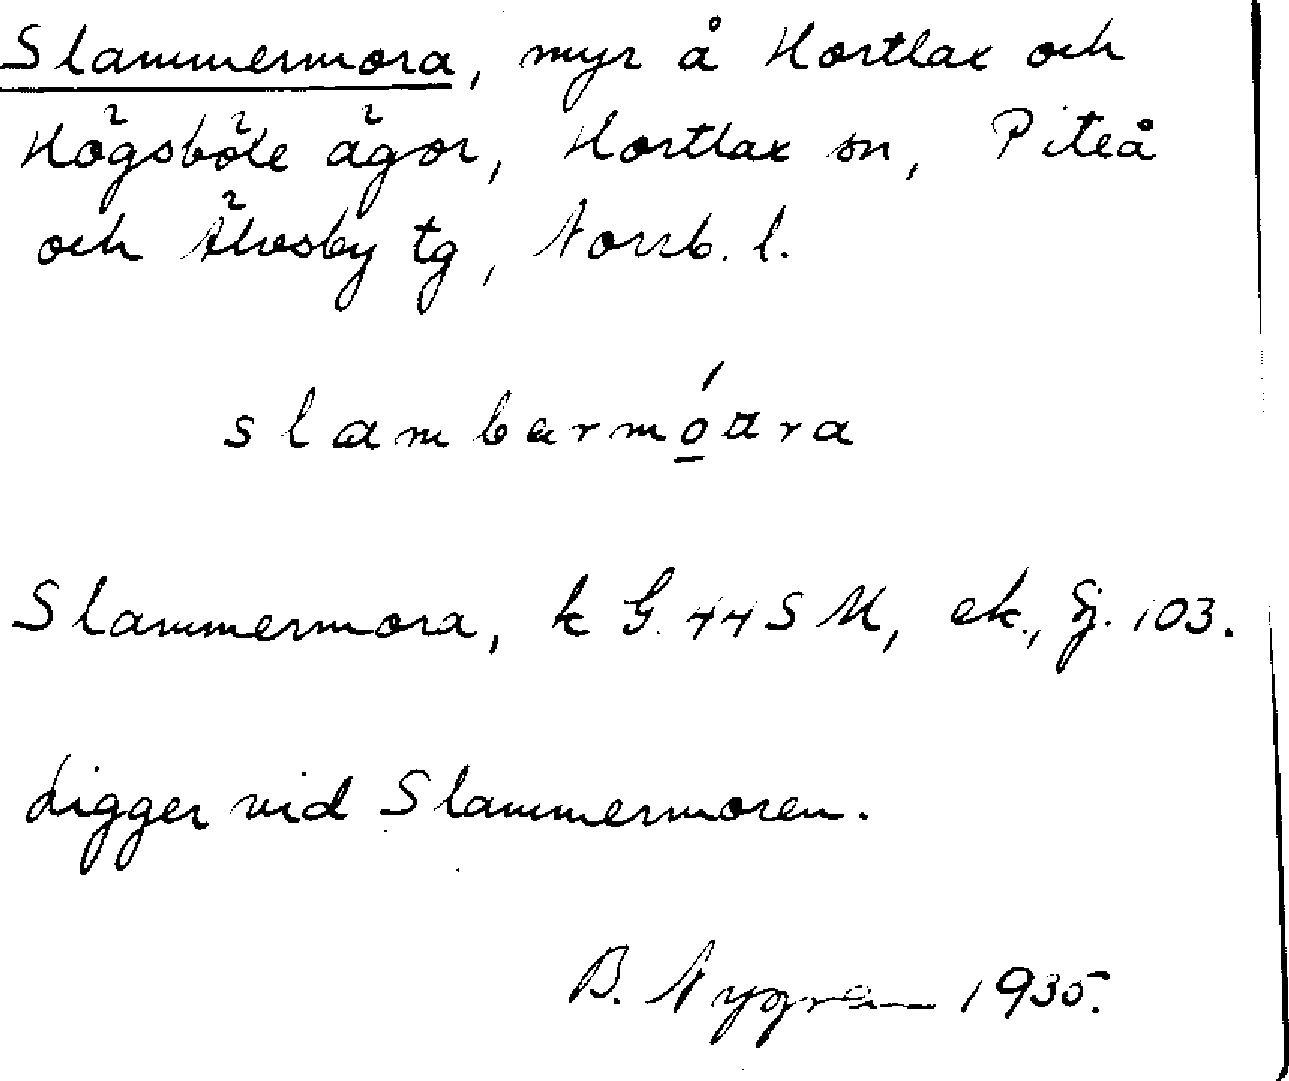 Slammermora, myr å Hortlax och
Högsböle ägor, Hortlax sn, Piteå
och Älvsby tg, Norrb. l.
slambarmóara
Slammermora, k G. 44 S M, ek., Fj. 103.
Ligger vid Slammermoren.
B. Nygren 1935.